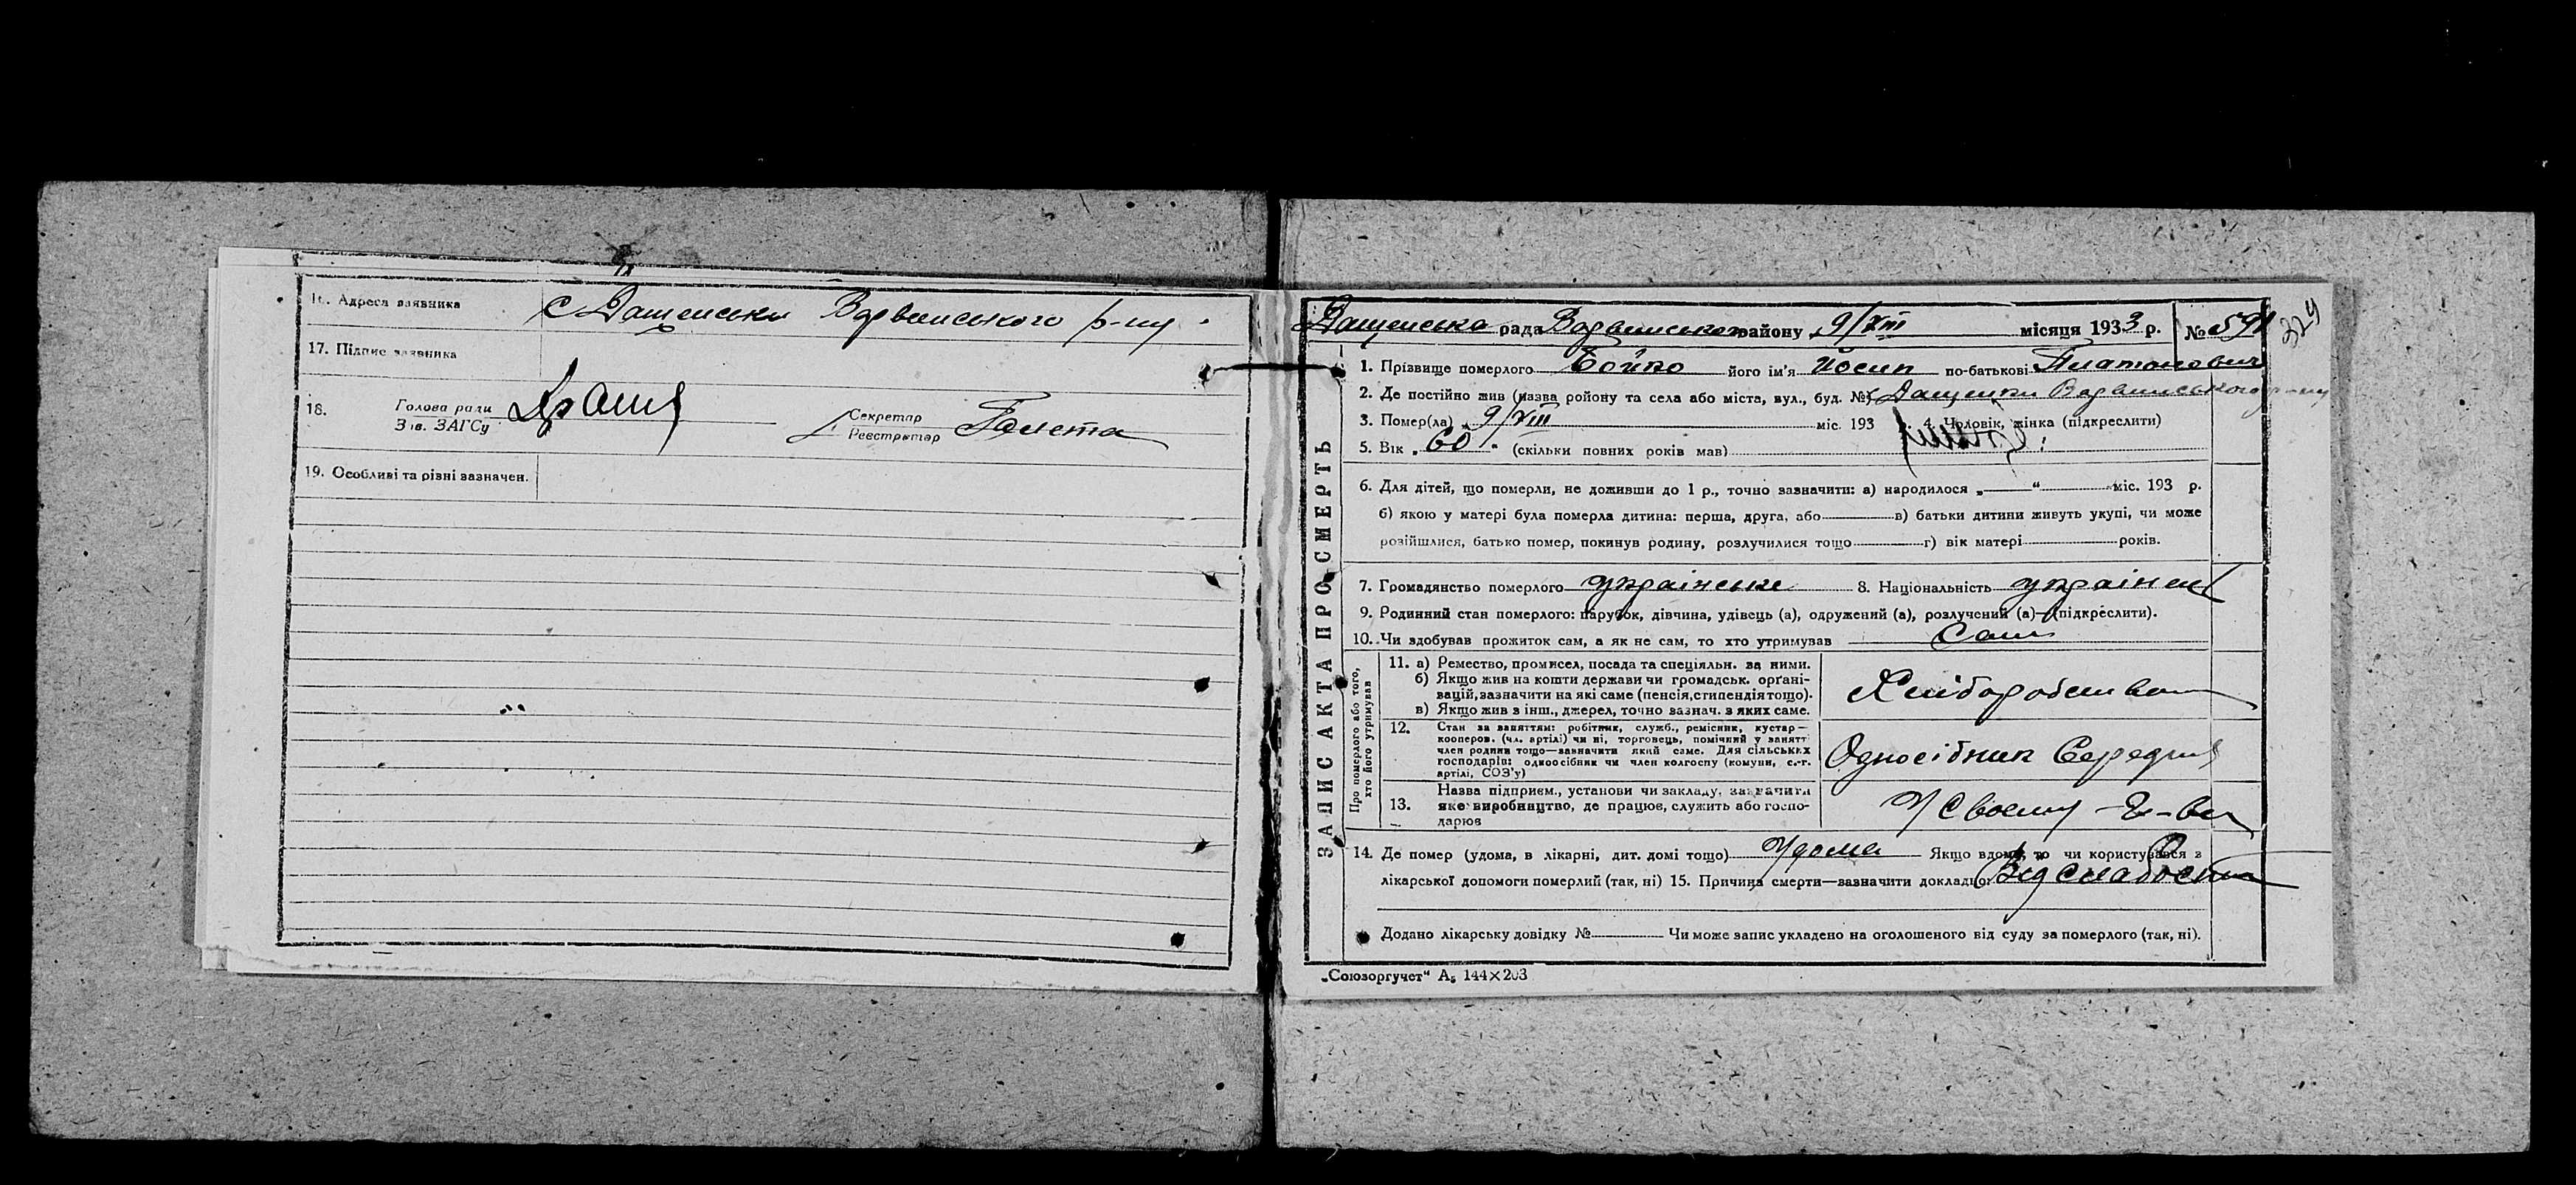 16. Адреса заявника с Дащенки Варвинського р-ну
17. Підпис заявника
18. Голова ради
Зав. ЗАГСу
Секретар
Реєстратор Галета
19. Особливі та різні зазначен.
Дащенська рада Варвинського району „ 9/VIII місяця 1933 р. №
324
ЗАПИС АКТА ПРО СМЕРТЬ
1. Прізвище померлого Бойко його ім'я Йосип по-батькові Платонович
2. Де постійно жив (назва району та села або міста, вул., буд. №) Дащенки Варвинського р-ну
3. Помер(ла) „ 9/VIII міс. 193 4. Чоловік, жінка (підкреслити)
5. Вік „ 60 " (скільки повних років мав)
6. Для дітей, що померли, не доживши до 1 р., точно зазначити: а) народилося „ “ міс. 193 р.
б) якою у матері була померла дитина: перша, друга, або в) батьки дитини живуть укупі, чи може
розійшлися, батько помер, покинув родину, розлучилися тощо г) вік матері років.
7. Громадянство померлого українське 8. Національність українец
9. Родинний стан померлого: парубок, дівчина, удівець (а), одружений (а), розлучений (а)—(підкреслити).
10. Чи здобував прожиток сам, а як не сам, то хто утримував Сам
Про померлого або того,
хто його утримував
11. а) Ремество, промисел, посада та спеціяльн. за ними.
б) Якщо жив на кошти держави чи громадськ. орґані-
вацій, зазначити на які саме (пенсія, стипендія тощо).
в) Якщо жив з інш., джерел, точно зазнач. з яких саме.
Хліборобство
12. Стан за заняттям: робітник, служб., ремісник, кустар—
кооперов. (чл. артілі) чи ні, торговець, помічний у занятт
член родини тощо—зазначити який саме. Для сільських
господарів: одноосібник чи член колгоспу (комуни, с.-г.
артілі, СОЗ'у)
Односібник Середняк
13. Назва підприєм., установи чи закладу, зазначити
яке виробництво, де працює, служить або госпо-
дарює
У своему г-ві
14. Де помер (удома, в лікарні, дит. домі тощо) Удома Якщо вдома, то чи користувався з
лікарської допомоги померлий (так, ні) 15. Причина смерти—зазначити докладно: Від слабости
Додано лікарську довідку № Чи може запис укладено на оголошеного від суду за померлого (так, ні).
„Союзоргучет“ А₅ 144×203